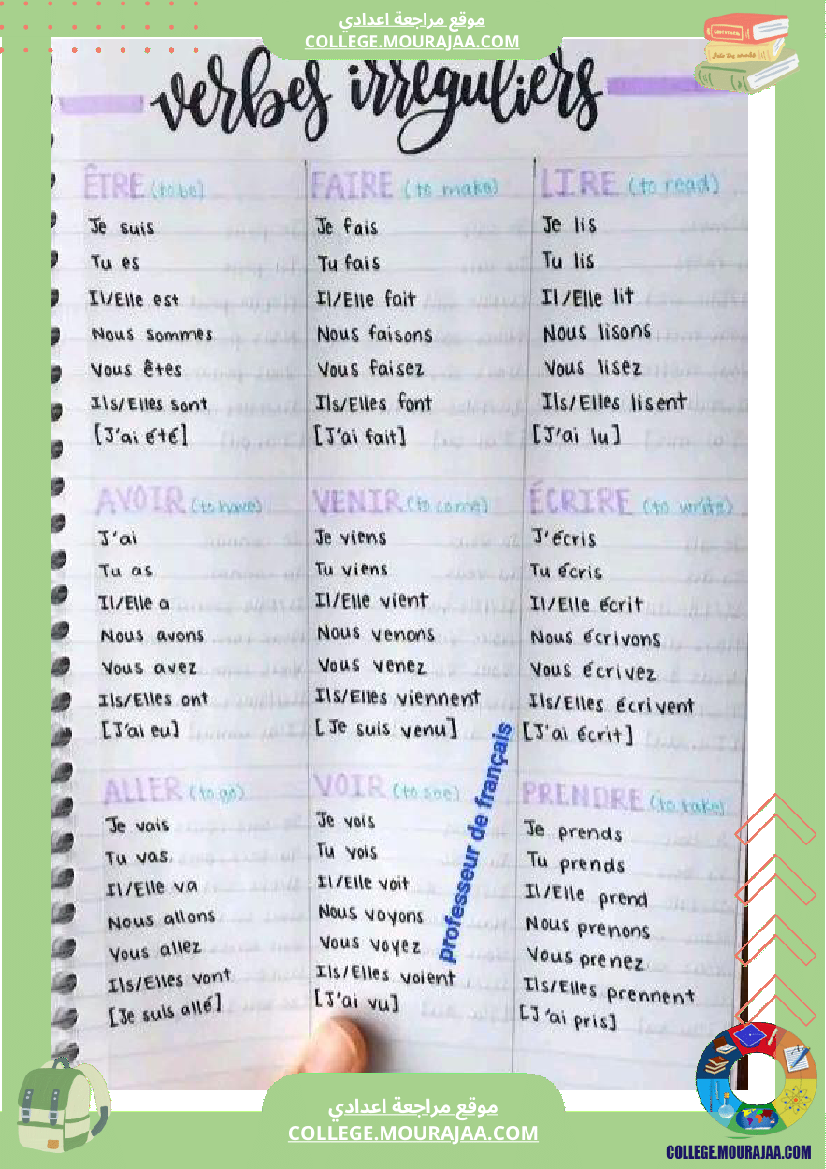 موقع مراجعة اعدادي
COLLEGE.MOURAJAA.COM
verbes irréguliers
ÊTRE (to be)
Je suis
Tu es
Il/Elle est
Nous sommes
Vous êtes
Ils/Elles sont
[J'ai été]
FAIRE (to make)
Je fais
Tu fais
Il/Elle fait
Nous faisons
Vous faisez
Ils/Elles font
[J'ai fait]
LIRE (to read)
Je lis
Tu lis
Il/Elle lit
Nous lisons
Vous lisez
Ils/Elles lisent
[J'ai lu]
AVOIR (to have)
J'ai
Tu as
Il/Elle a
Nous avons
Vous avez
Ils/Elles ont
[J'ai eu]
VENIR (to come)
Je viens
Tu viens
Il/Elle vient
Nous venons
Vous venez
Ils/Elles viennent
[Je suis venu]
ÉCRIRE (to write)
J'écris
Tu écris
Il/Elle écrit
Nous écrivons
Vous écrivez
Ils/Elles écrivent
[J'ai écrit]
ALLER (to go)
Je vais
Tu vas
Il/Elle va
Nous allons
Vous allez
Ils/Elles vont
[Je suis allé]
VOIR (to see)
Je vois
Tu vois
Il/Elle voit
Nous voyons
Vous voyez
Ils/Elles voient
[J'ai vu]
professeur de français
PRENDRE (to take)
Je prends
Tu prends
Il/Elle prend
Nous prenons
Vous prenez
Ils/Elles prennent
[J'ai pris]
موقع مراجعة اعدادي
COLLEGE.MOURAJAA.COM
COLLEGE.MOURAJAA.COM